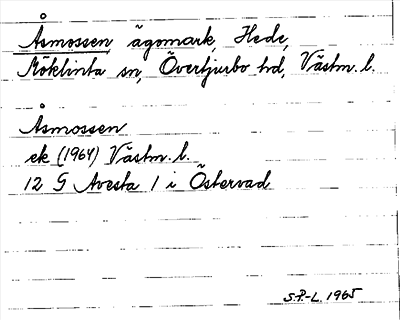 Åsmossen ägomark, Hede,
Möklinta sn, Övertjurbo hd, Västm. l.
Åsmossen
ek (1964) Västm. l.
12 G Avesta 1 i Östervad
S.P.-L. 1965